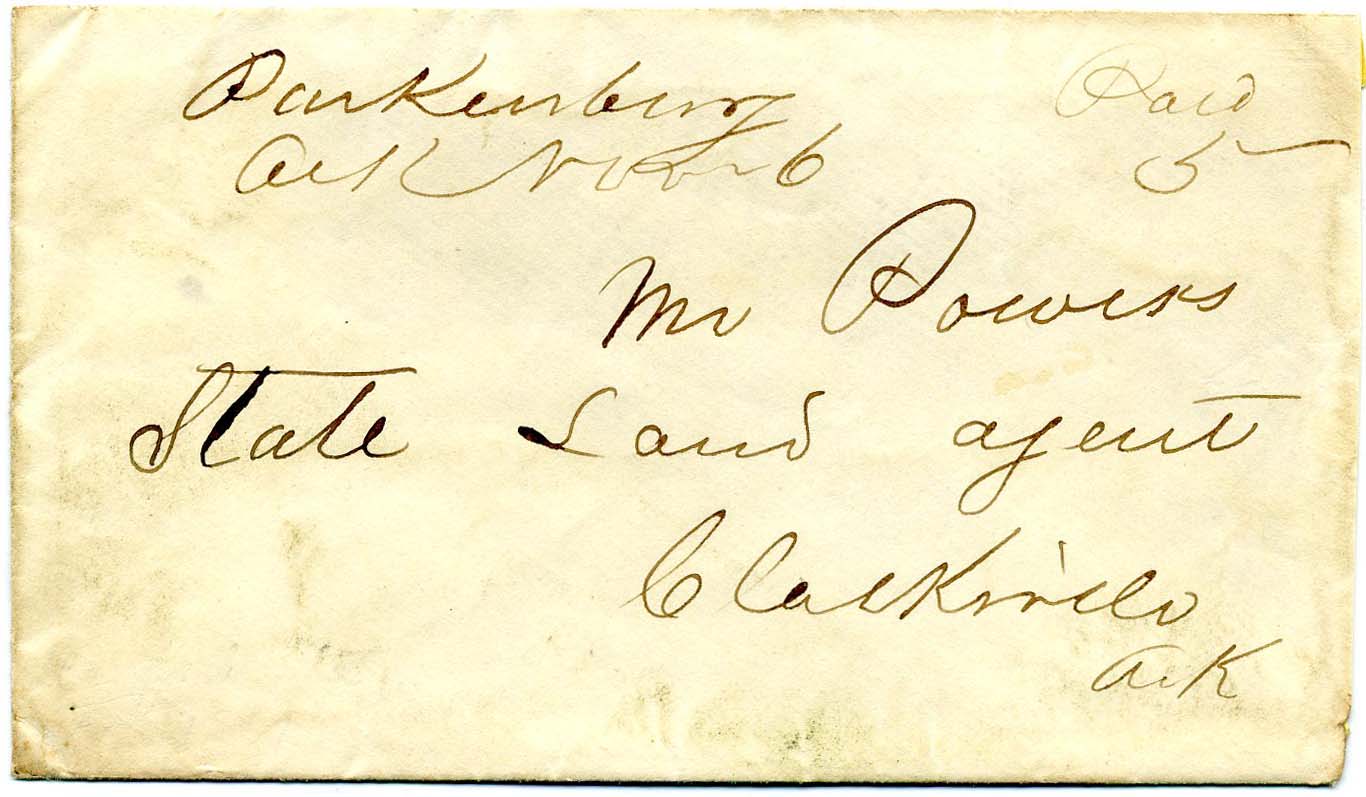 Parkenburg Paid
Ark Novbr 6 5
Mr Powers
State Land agent
Clarkvill
Ark